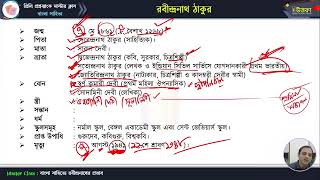 প্রিলি প্রস্তুতিতে মাস্টার ক্লাস
বাংলা সাহিত্য
রবীন্দ্রনাথ ঠাকুর
উত্তরণ
জন্ম : ৭ মে ১৮৬১ (২৫ বৈশাখ ১২৬৮)
পিতা : দেবেন্দ্রনাথ ঠাকুর (সাহিত্যিক)
মাতা : সারদা দেবী
ভ্রাতা : দ্বিজেন্দ্রনাথ ঠাকুর (কবি, সুরকার, চিত্রশিল্পী)
সত্যেন্দ্রনাথ ঠাকুর (লেখক ও ইন্ডিয়ান সিভিল সার্ভিসে যোগদানকারী প্রথম ভারতীয়)
জ্যোতিরিন্দ্রনাথ ঠাকুর (নাট্যকার, চিত্রশিল্পী ও কাদম্বরী দেবীর স্বামী)
বোন : স্বর্ণ কুমারী দেবী (প্রথম মহিলা ঔপন্যাসিক)
সৌদামিনী দেবী (লেখিকা)
স্ত্রী :
সন্তান :
ধর্ম :
স্কুলসমূহ : নর্মাল স্কুল, বেঙ্গল একাডেমী স্কুল এবং সেন্ট জেভিয়ার্স স্কুল।
প্রাপ্ত উপাধি : গুরুদেব, কবিগুরু, বিশ্বকবি।
মৃত্যু : ৭ আগস্ট ১৯৪১ (২২শে শ্রাবণ ১৩৪৮)
Master Class : বাংলা সাহিত্যে রবীন্দ্রনাথের প্রভাব